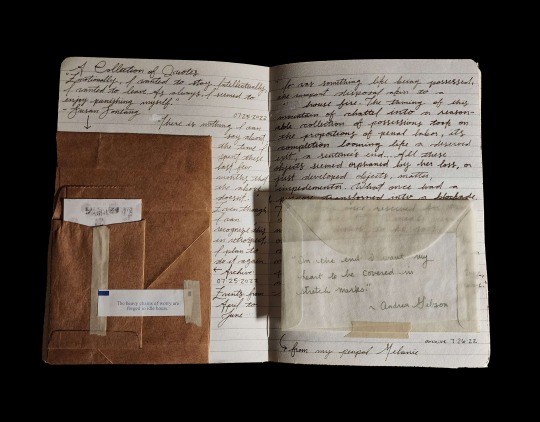 A Collection of Quotes
"Emotionally, I wanted to stay. Intellectually,
I wanted to leave. As always, I seemed to
enjoy punishing myself."
Susan Sontag
07.24.2022
there is nothing I can
say about
the time I
spent these
last few
months that
the above
doesn't.
Even though
I can
recognize this
in retrospect,
I plan to
do it again
← Archive:
07.25.2022
Events from
April to
June
The heavy chains of worry are
forged in idle hours.
was something like being possessed,
the disposal akin to a
house fire. The taming of this
mountain of chattel into a reason-
able collection of possessions took on
the proportions of penal labor, its
completion looming like a deserved
a sentence's end. All these
objects seemed orphaned by her loss, or
just developed objects, matter,
impedimenta. What once had a
transformed into a blockade,
"In the end I want my
heart to be covered in
stretch marks."
~ Andrea Gibson
archive 7.26.22
from my penpal Melanie